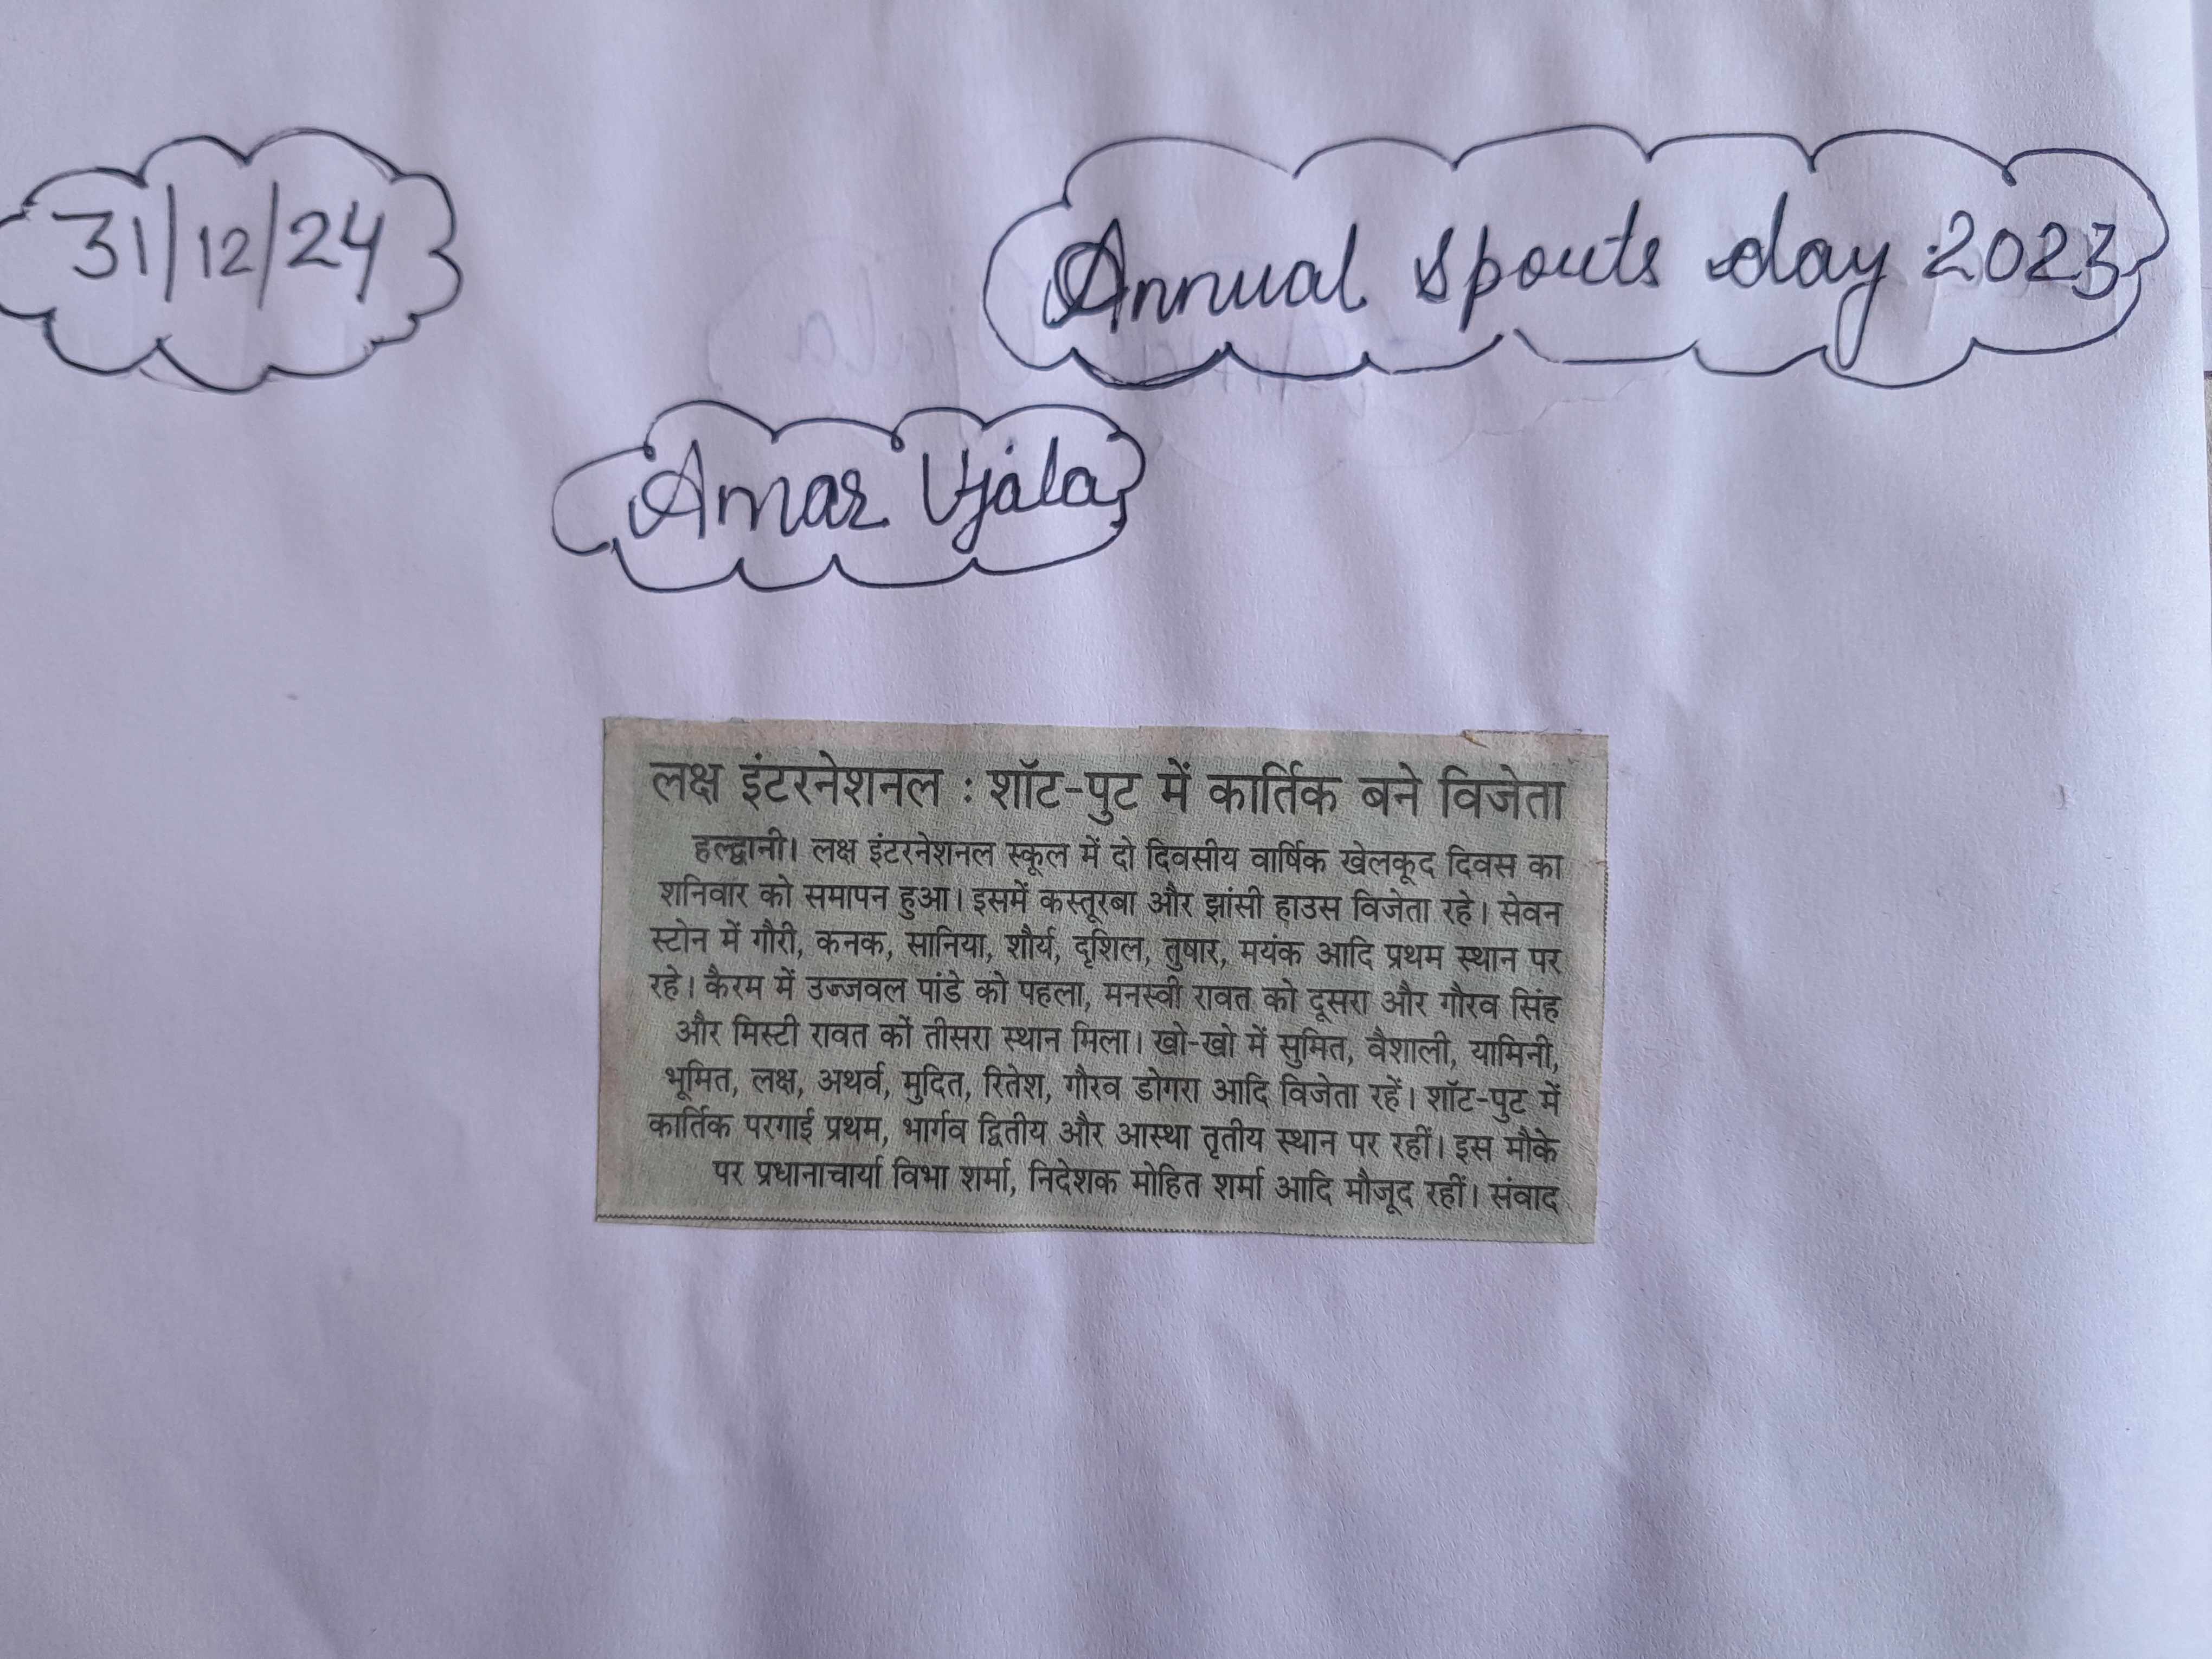 31/12/24
Annual sports day 2023
Amar Ujala
लक्ष इंटरनेशनल : शॉट-पुट में कार्तिक बने विजेता
हल्द्वानी। लक्ष इंटरनेशनल स्कूल में दो दिवसीय वार्षिक खेलकूद दिवस का
शनिवार को समापन हुआ। इसमें कस्तूरबा और झांसी हाउस विजेता रहे। सेवन
स्टोन में गौरी, कनक, सानिया, शौर्य, दृशिल, तुषार, मयंक आदि प्रथम स्थान पर
रहे। कैरम में उज्जवल पांडे को पहला, मनस्वी रावत को दूसरा और गौरव सिंह
और मिस्टी रावत कों तीसरा स्थान मिला। खो-खो में सुमित, वैशाली, यामिनी,
भूमित, लक्ष, अथर्व, मुदित, रितेश, गौरव डोगरा आदि विजेता रहें। शॉट-पुट में
कार्तिक परगाई प्रथम, भार्गव द्वितीय और आस्था तृतीय स्थान पर रहीं। इस मौके
पर प्रधानाचार्या विभा शर्मा, निदेशक मोहित शर्मा आदि मौजूद रहीं। संवाद